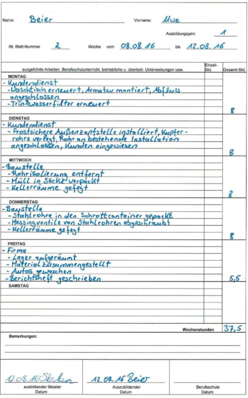 Name: Beier Vorname: Uwe
Ausbildungsjahr: 1
Int. Blatt-Nummer 2 Woche vom 08.08.16 bis 12.08.16
ausgeführte Arbeiten, Berufsschulunterricht, betriebliche u. überbetr. Unterweisungen usw. Einzel-Std. Gesamt-Std.
MONTAG
- Kundendienst
- Waschtisch erneuert, Armatur montiert, Abfluss
angeschlossen
- Trinkwasserfilter erneuert 8
DIENSTAG
- Kundendienst
- Frostsichere Außenzapfstelle installiert, Kupfer-
rohre verlegt, Rohr an bestehende Installation
angeschlossen, Kunden eingewiesen 8
MITTWOCH
- Baustelle
- Rohrisolierung entfernt
- Müll in Säcke verpackt
- Kellerräume gefegt 8
DONNERSTAG
- Baustelle
- Stahlrohre in den Schrottcontainer gepackt
- Messingventile von Stahlrohren abgeschraubt
- Kellerräume gefegt 8
FREITAG
- Firma
- Lager aufgeräumt
- Material zusammengestellt
- Autos gewaschen
- Berichtsheft geschrieben 5,5
SAMSTAG
Wochenstunden 37,5
Bemerkungen:
12.08.16 12.08.16 Beier
ausbildender Meister Auszubildender Berufsschule
Datum Datum Datum